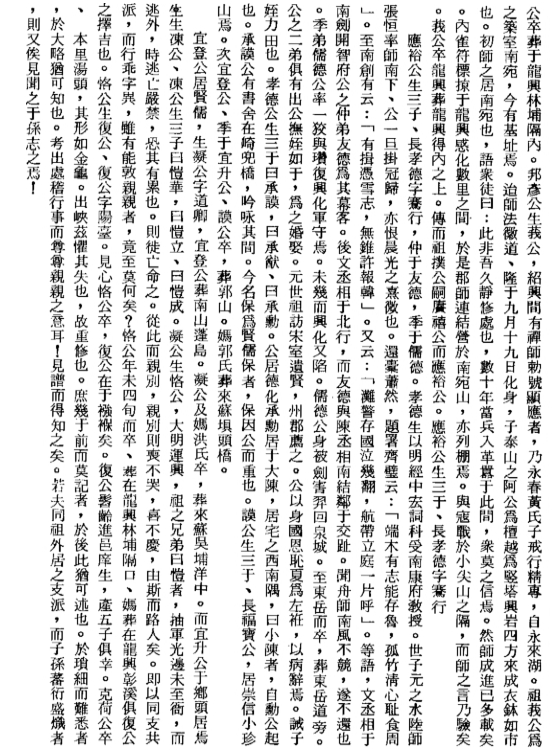 公卒葬于龍興林埔隔內。邦彥公生我公，紹興間有禪師勅號顯應者，乃永春黃氏子戒行精專，自永來湖。祖我公爲
之築室南宛，今有基址焉。迨師法徽道、隆于九月十九日化身，子泰山之阿公爲檀越爲堅塔興岩四方來成衣鉢如市
也。初師之居南宛也，語衆徒曰：此非吾久靜修處也，數十年當兵入革囂于此間，衆莫之信焉。然師成進已多載矣
。內雀符標掠于龍興感化數里之間，於是郡師連結營於南宛山，亦列棚焉。與寇戰於小尖山之隔，而師之言乃驗矣
。我公卒龍興葬龍興得內之上。傳而祖撲公嗣廣禧公而應裕公。應裕公生三子、長孝德字騫行
應裕公生三子、長孝德字騫行，仲于友德，季于儒德。孝德生以明經中宏詞科受南康府敎授。世子元之水陸師
張恒率師南下、公一旦掛冠歸，亦恨晨光之熹微也。還臺蕭然，題署齊壁云：「端木有志能存魯，孤竹清心恥食周
」。至南創有云：「有揖憑雪志，無錐許報韓」。又云：「灘警存國泣幾翻，航帶立庭一片呼」。等語，文丞相于
南劍開智府公之仲弟友德爲其幕客。後文丞相于北行，而友德與陳丞相南結鄰于交趾。聞舟師南風不競，遂不還也
。季弟儒德公率一狻與瓚復興化軍守焉。未幾而興化又陷。儒德公身被劍害羿回泉城。至東岳而卒，葬東岳道旁。
公之二弟俱有出公撫姪如于，爲之婚娶。元世祖訪宋室遺賢，州郡薦之。公以身國恩恥夏爲左袵，以病辭焉。誡子
姪力田也。孝德公生三于曰承謨，曰承猷、曰承勳。公居德化承勳居于大陳，居宅之西南隅，曰小陳者，自勳公起
也。承謨公有書舍在崎兜橋，吟咏其間。今名保爲賢儒保者，保因公而重也。謨公生三于、長福寶公，居崇信小珍
山焉。次宜登公、季于宜升公、謨公卒，葬郭山。媽郭氏葬來蘇墳頭橋。
宜登公居賢儒，生凝公字道卿，宜登公葬南山蓬島。凝公及媽洪氏卒，葬來蘇吳埔洋中。而宜升公于鄉頭居焉
生生湅公、湅公生三子曰愷華，曰愷立、曰愷成。凝公生恪公，大明運興，祖之兄弟曰愷者，抽軍光邊未至衙，而
逃外，時逃亡嚴禁，恐其有累也。則徙亡命之。從此而親別，親別則喪不哭，喜不慶，由斯而路人矣。即以同支共
派，而行乖字異，雖有能敦親親者，竟至莫何矣？恪公年未四旬而卒、葬在龍興林埔隔口、媽葬在龍興彭溪俱復公
之擇吉也。恪公生復公、復公字陽臺。見心恪公卒，復公在于襁褓矣。復公髫齡進邑庠生，產五子俱幸。克荷公卒
、本里湯頭，其形如金龜。出峽茲懼其失也，故重修也。庶幾于前而莫記者，於後此猶可述也。於瑣細而難悉者
，於大略猶可知也。考出處稽行事而尊尊親親之意耳！見譜而得知之矣。若夫同祖外居之支派，而子孫蕃衍盛熾者
，則又俟見聞之于孫志之焉！